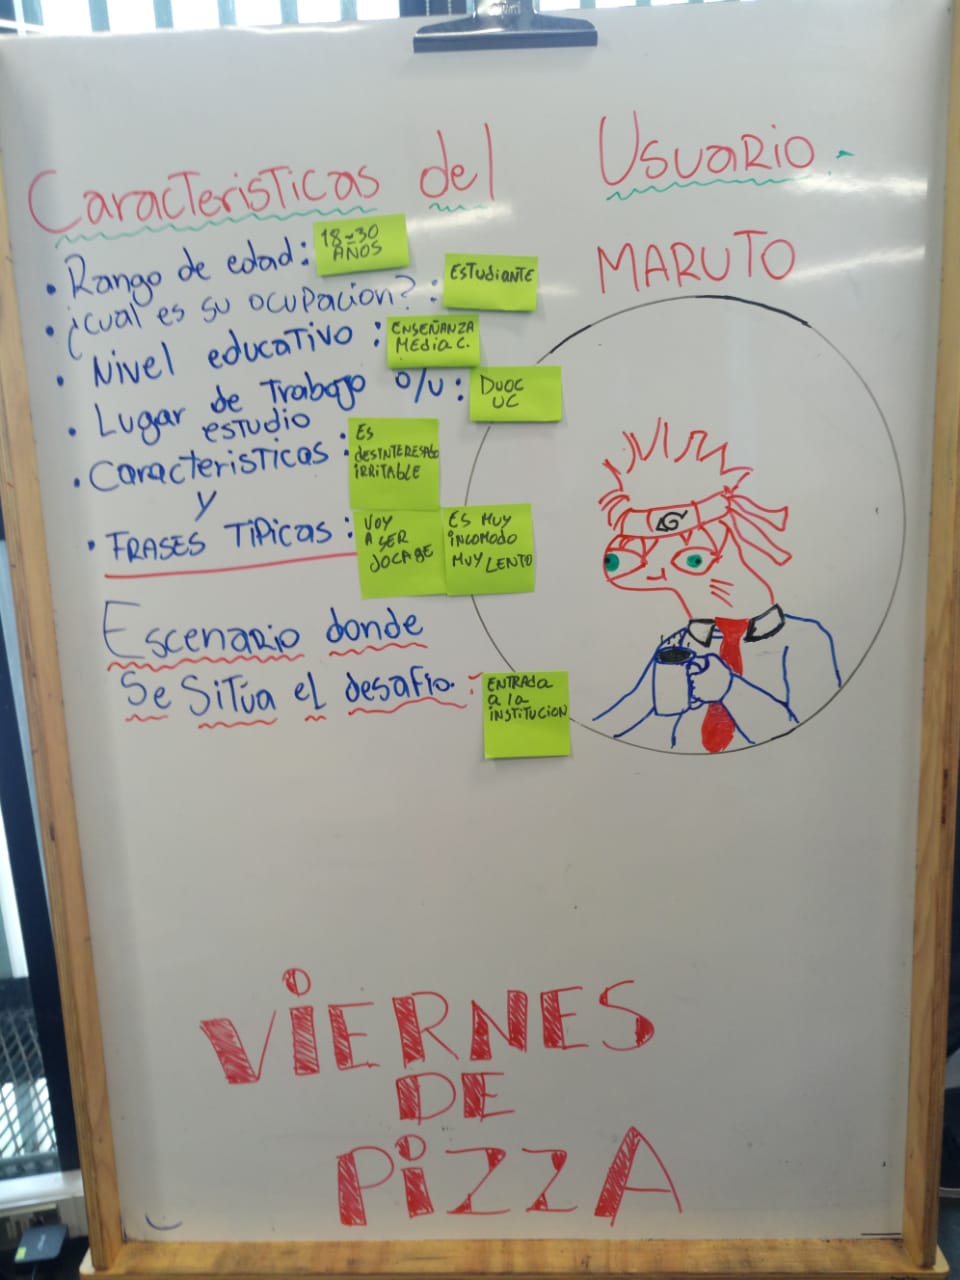 Caracteristicas del Usuario.
MARUTO
• Rango de edad:
18-30
AÑOS
• ¿cual es su ocupacion? :
ESTUDIANTE
• Nivel educativo :
ENSEÑANZA
MEDIA C.
• Lugar de Trabajo o/u :
estudio
DUOC
UC
• Caracteristicas :
y
ES
DESINTERESADO
IRRITABLE
• FRASES TIPICAS :
VOY
A SER
JOCAGE
ES MUY
INCOMODO
MUY LENTO
Escenario donde
Se Sitúa el desafio. :
ENTRADA
a la
INSTITUCION
VIERNES
DE
PIZZA